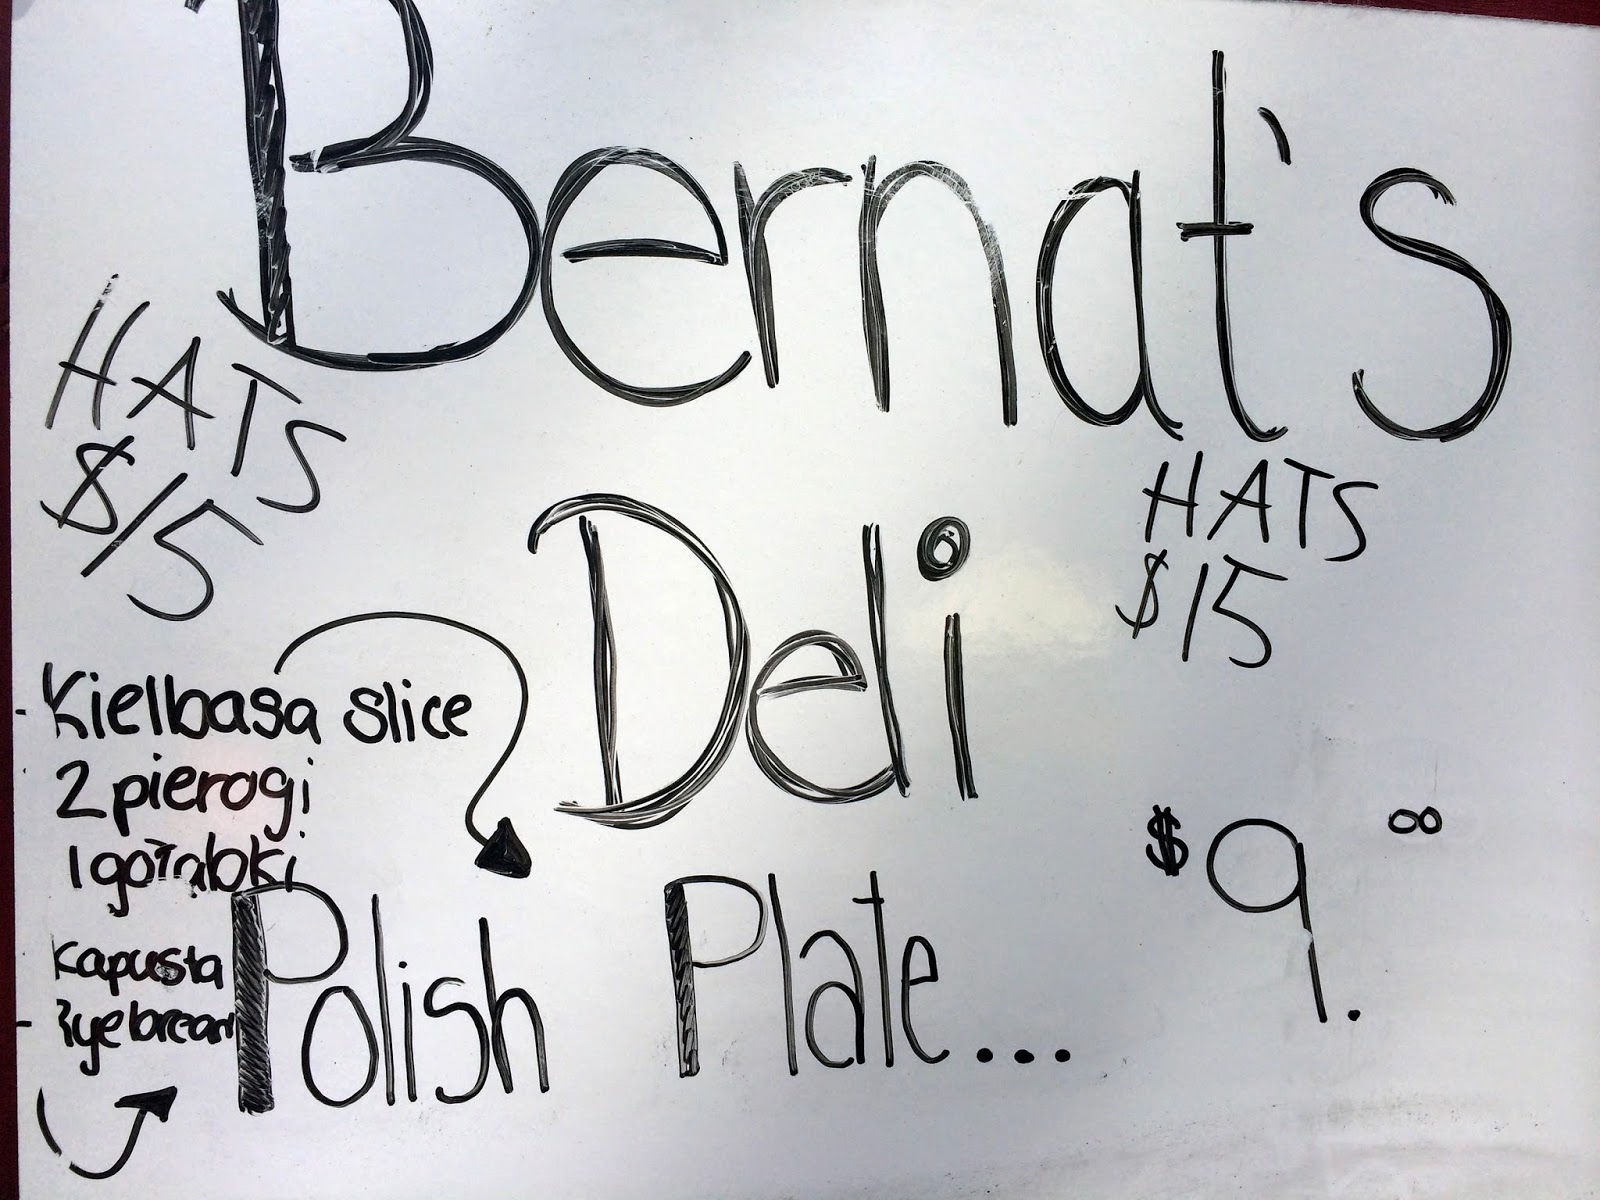 Bernat's
HATS
$15
Deli
HATS
$15
- Kielbasa slice
2 pierogi
1 gołabki
Kapusta
- Rye bread
Polish Plate... $9.00